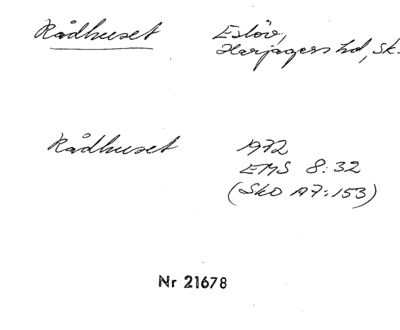 Rådhuset Eslöv,
Harjagers hd, Sk.
Rådhuset 1972
EMS 8:32
(SkO A7:153)
Nr 21678